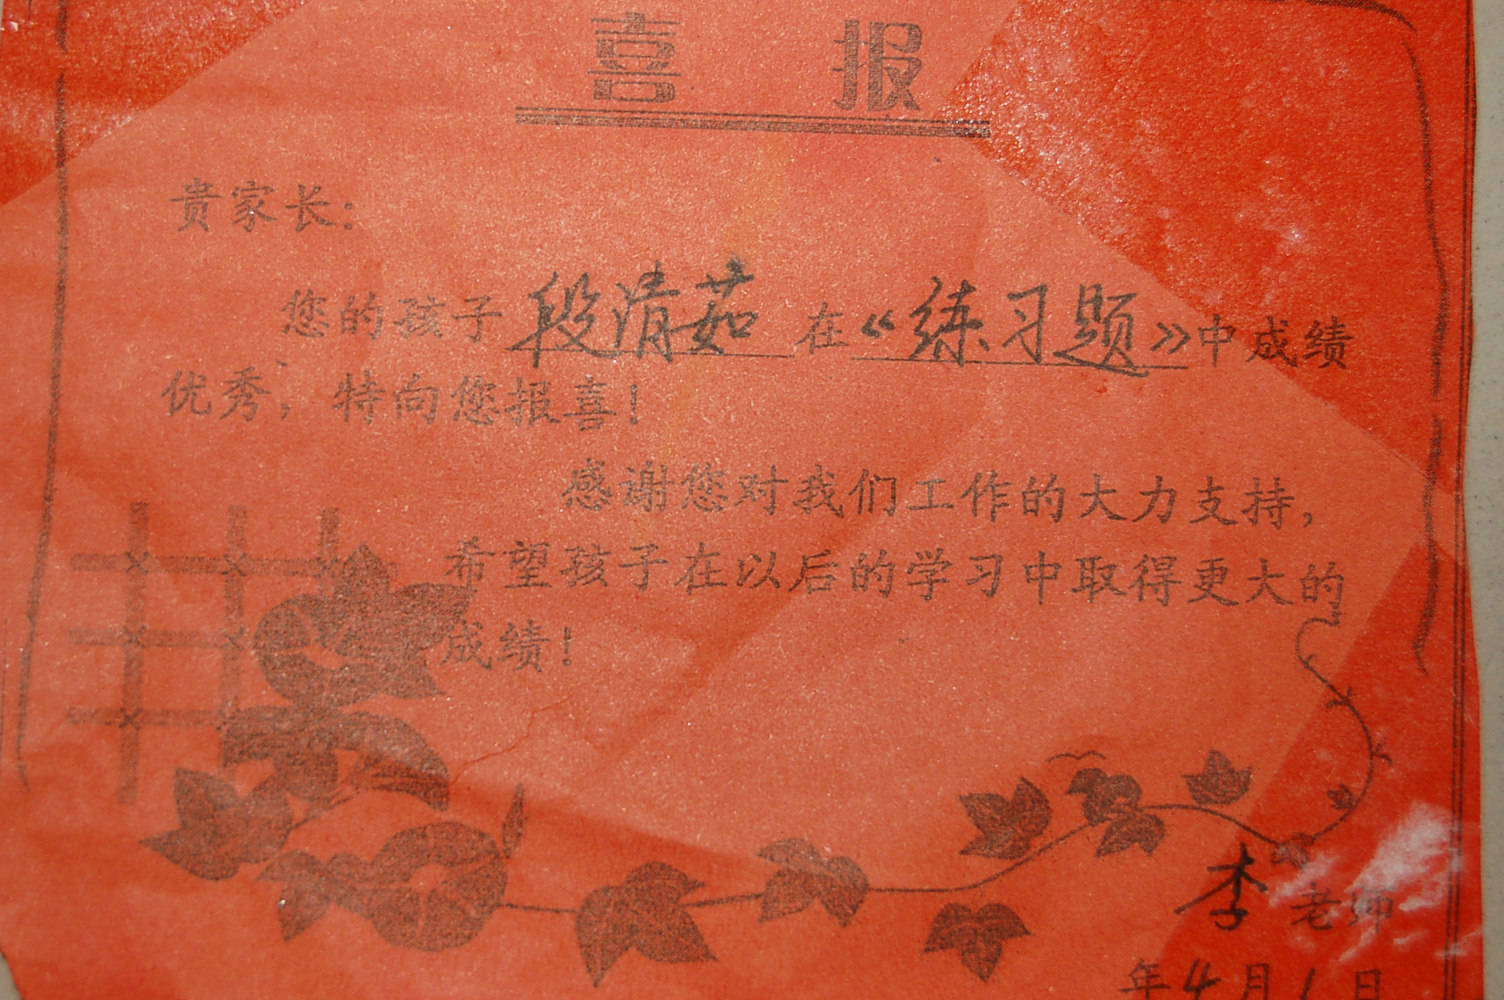 喜报
贵家长：
您的孩子段清茹在《练习题》中成绩
优秀，特向您报喜！
感谢您对我们工作的大力支持，
希望孩子在以后的学习中取得更大的
成绩！
李老师
年4月1日